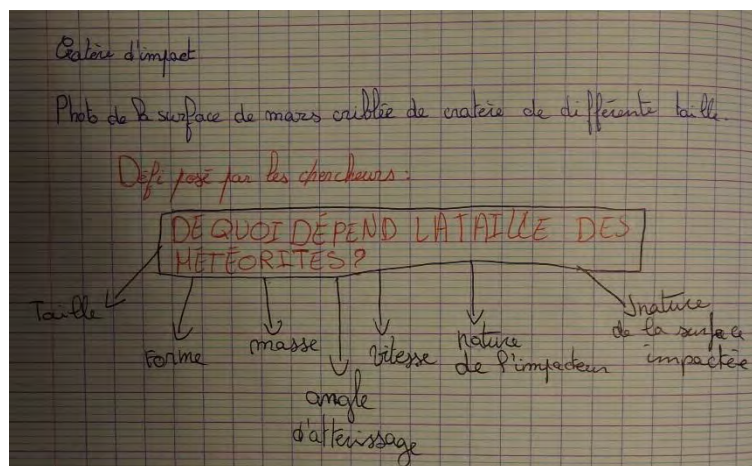 Cratère d'impact
Photo de la surface de mars criblée de cratère de différente taille.
Défi posé par les chercheurs :
DE QUOI DÉPEND LA TAILLE DES
MÉTÉORITES ?
Taille
Forme
masse
angle
d'atterissage
vitesse
nature
de l'impacteur
nature
de la surface
impactée